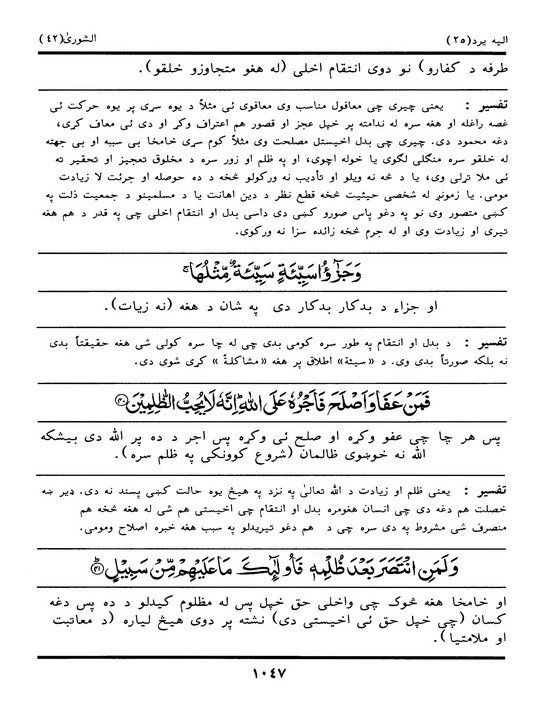 الیه یرد(۲۵)
الشوریٰ(۴۲)
طرفه د کفارو) نو دوی انتقام اخلی (له هغو متجاوزو خلقو).
تفسیر : یعنی چیری چی معافول مناسب وی معافوی ئی مثلاً د یوه سړی پر یوه حرکت ئی
غصه راغله او هغه سره له ندامته پر خپل عجز او قصور هم اعتراف وکړ او دی ئی معاف کړی،
دغه محمود دی. چیری چی بدل اخیستل مصلحت وی مثلاً کوم سړی خامخا بی سببه او بی جهته
له خلقو سره منګلی لګوی یا خوله اچوی، او په ظلم او زور سره د مخلوق تعجیز او تحقیر ته
ئی ملا تړلی وی، یا د څه نه ویلو او تأدیب نه ورکولو څخه د ده حوصله او جرئت لا زیادت
مومی. یا زمونږ له شخصی حیثیت څخه قطع نظر د دین اهانت یا د مسلمینو د جمعیت ذلت په
کښی متصور وی نو په دغو پاس صورو کښی دی داسی بدل او انتقام اخلی چی په قدر د هم هغه
تیری او زیادت وی او له جرم څخه زائده سزا نه ورکوی.
وَجَزٰٓؤُا سَیِّئَةٍ سَیِّئَةٌ مِّثْلُهَا ۚ
او جزاء د بدکار بدکار دی په شان د هغه (نه زیات).
تفسیر : د بدل او انتقام په طور سره کومی بدی چی له چا سره کولی شی هغه حقیقتاً بدی
نه بلکه صورتاً بدی وی. د «سیئة» اطلاق پر هغه «مشاکلةً» کړی شوی دی.
فَمَنْ عَفَا وَاَصْلَحَ فَاَجْرُهٗ عَلَی اللّٰهِ ؕ اِنَّهٗ لَا یُحِبُّ الظّٰلِمِیْنَ ﴿۴۰﴾
پس هر چا چی عفو وکړه او صلح ئی وکړه پس اجر د ده پر الله دی بیشکه
الله نه خوښوی ظالمان (شروع کوونکی په ظلم سره).
تفسیر : یعنی ظلم او زیادت د الله تعالیٰ په نزد په هیڅ یوه حالت کښی پسند نه دی. ډیر ښه
خصلت هم دغه دی چی انسان هغومره بدل او انتقام چی اخیستی هم شی له هغه څخه هم
منصرف شی مشروط په دی سره چی د هم دغو تیریدلو په سبب هغه خبره اصلاح ومومی.
وَلَمَنِ انْتَصَرَ بَعْدَ ظُلْمِهٖ فَاُولٰٓئِكَ مَا عَلَیْهِمْ مِّنْ سَبِیْلٍ ﴿۴۱﴾
او خامخا هغه څوک چی واخلی حق خپل پس له مظلوم کیدلو د ده پس دغه
کسان (چی خپل حق ئی اخیستی دی) نشته پر دوی هیڅ لیاره (د معاتبت
او ملامتیا).
۱۰۴۷